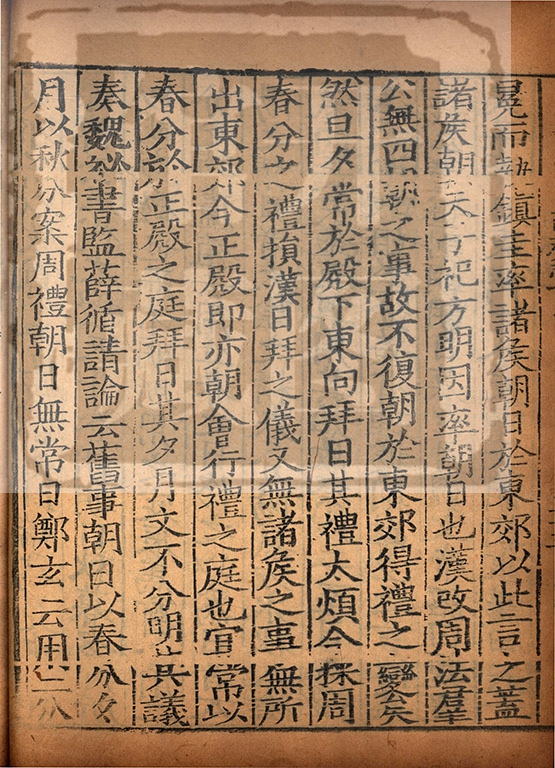 冕而執鎮圭率諸侯朝日於東郊以此言之蓋
諸侯朝天子祀方明因率朝日也漢改周法羣
公無四朝之事故不復朝於東郊得禮之變矣
然旦夕常於殿下東向拜日其禮太煩今採周
春分之禮損漢日拜之儀又無諸侯之事無所
出東郊今正殿即亦朝會行禮之庭也宜常以
春分於正殿之庭拜日其夕月文不分明其議
奏魏祕書監薛循請論云舊事朝日以春分夕
月以秋分案周禮朝日無常日鄭玄云用二分